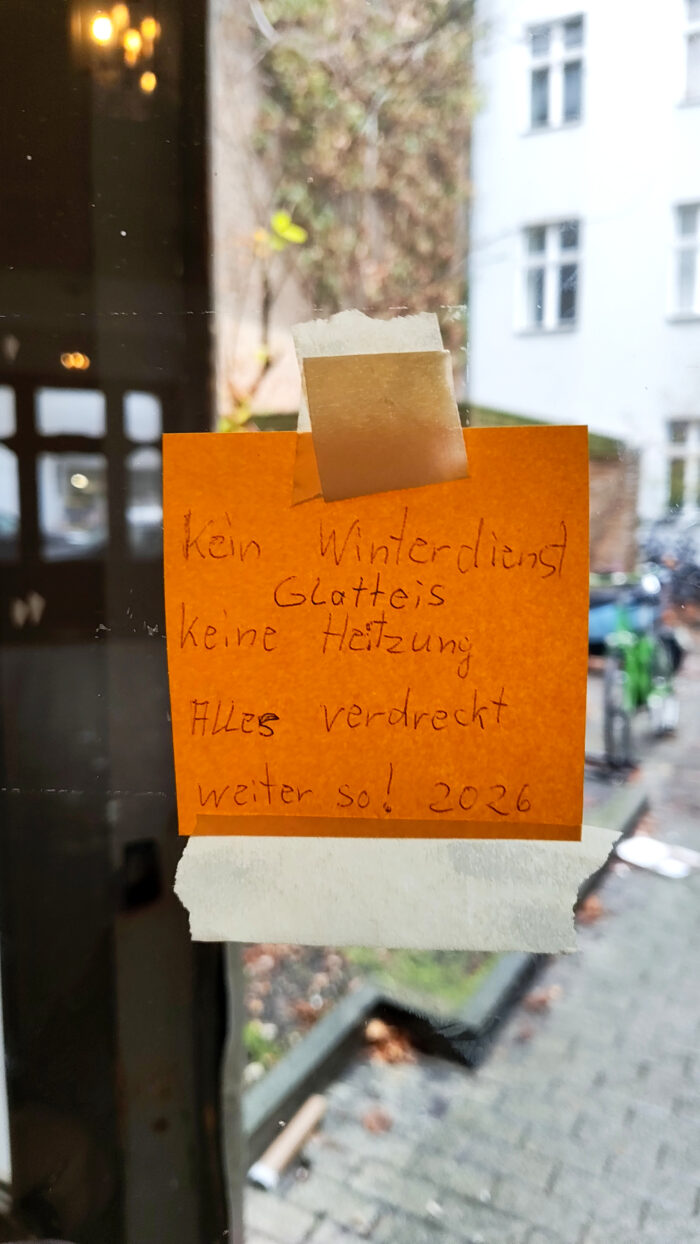 Kein Winterdienst
Glatteis
keine Heitzung
Alles verdreckt
weiter so! 2026